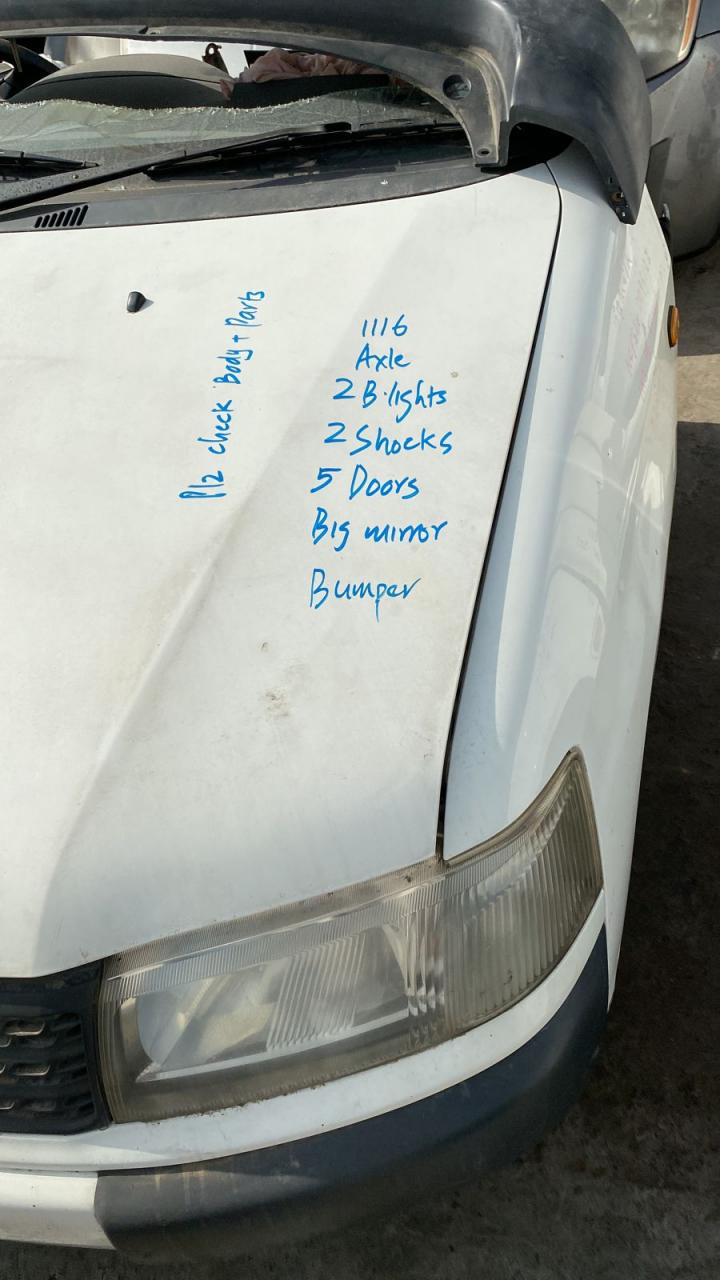 Plz check Body + Parts
1116
Axle
2 B.lights
2 Shocks
5 Doors
Big mirror
Bumper